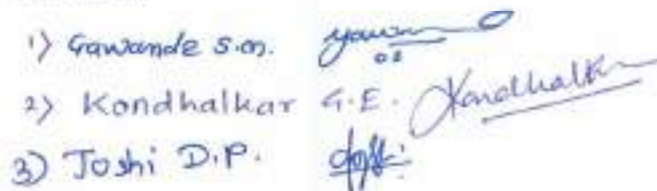 1) Gawande S.M.
2) Kondhalkar G.E. Kondhalkar
3) Joshi D.P. Joshi